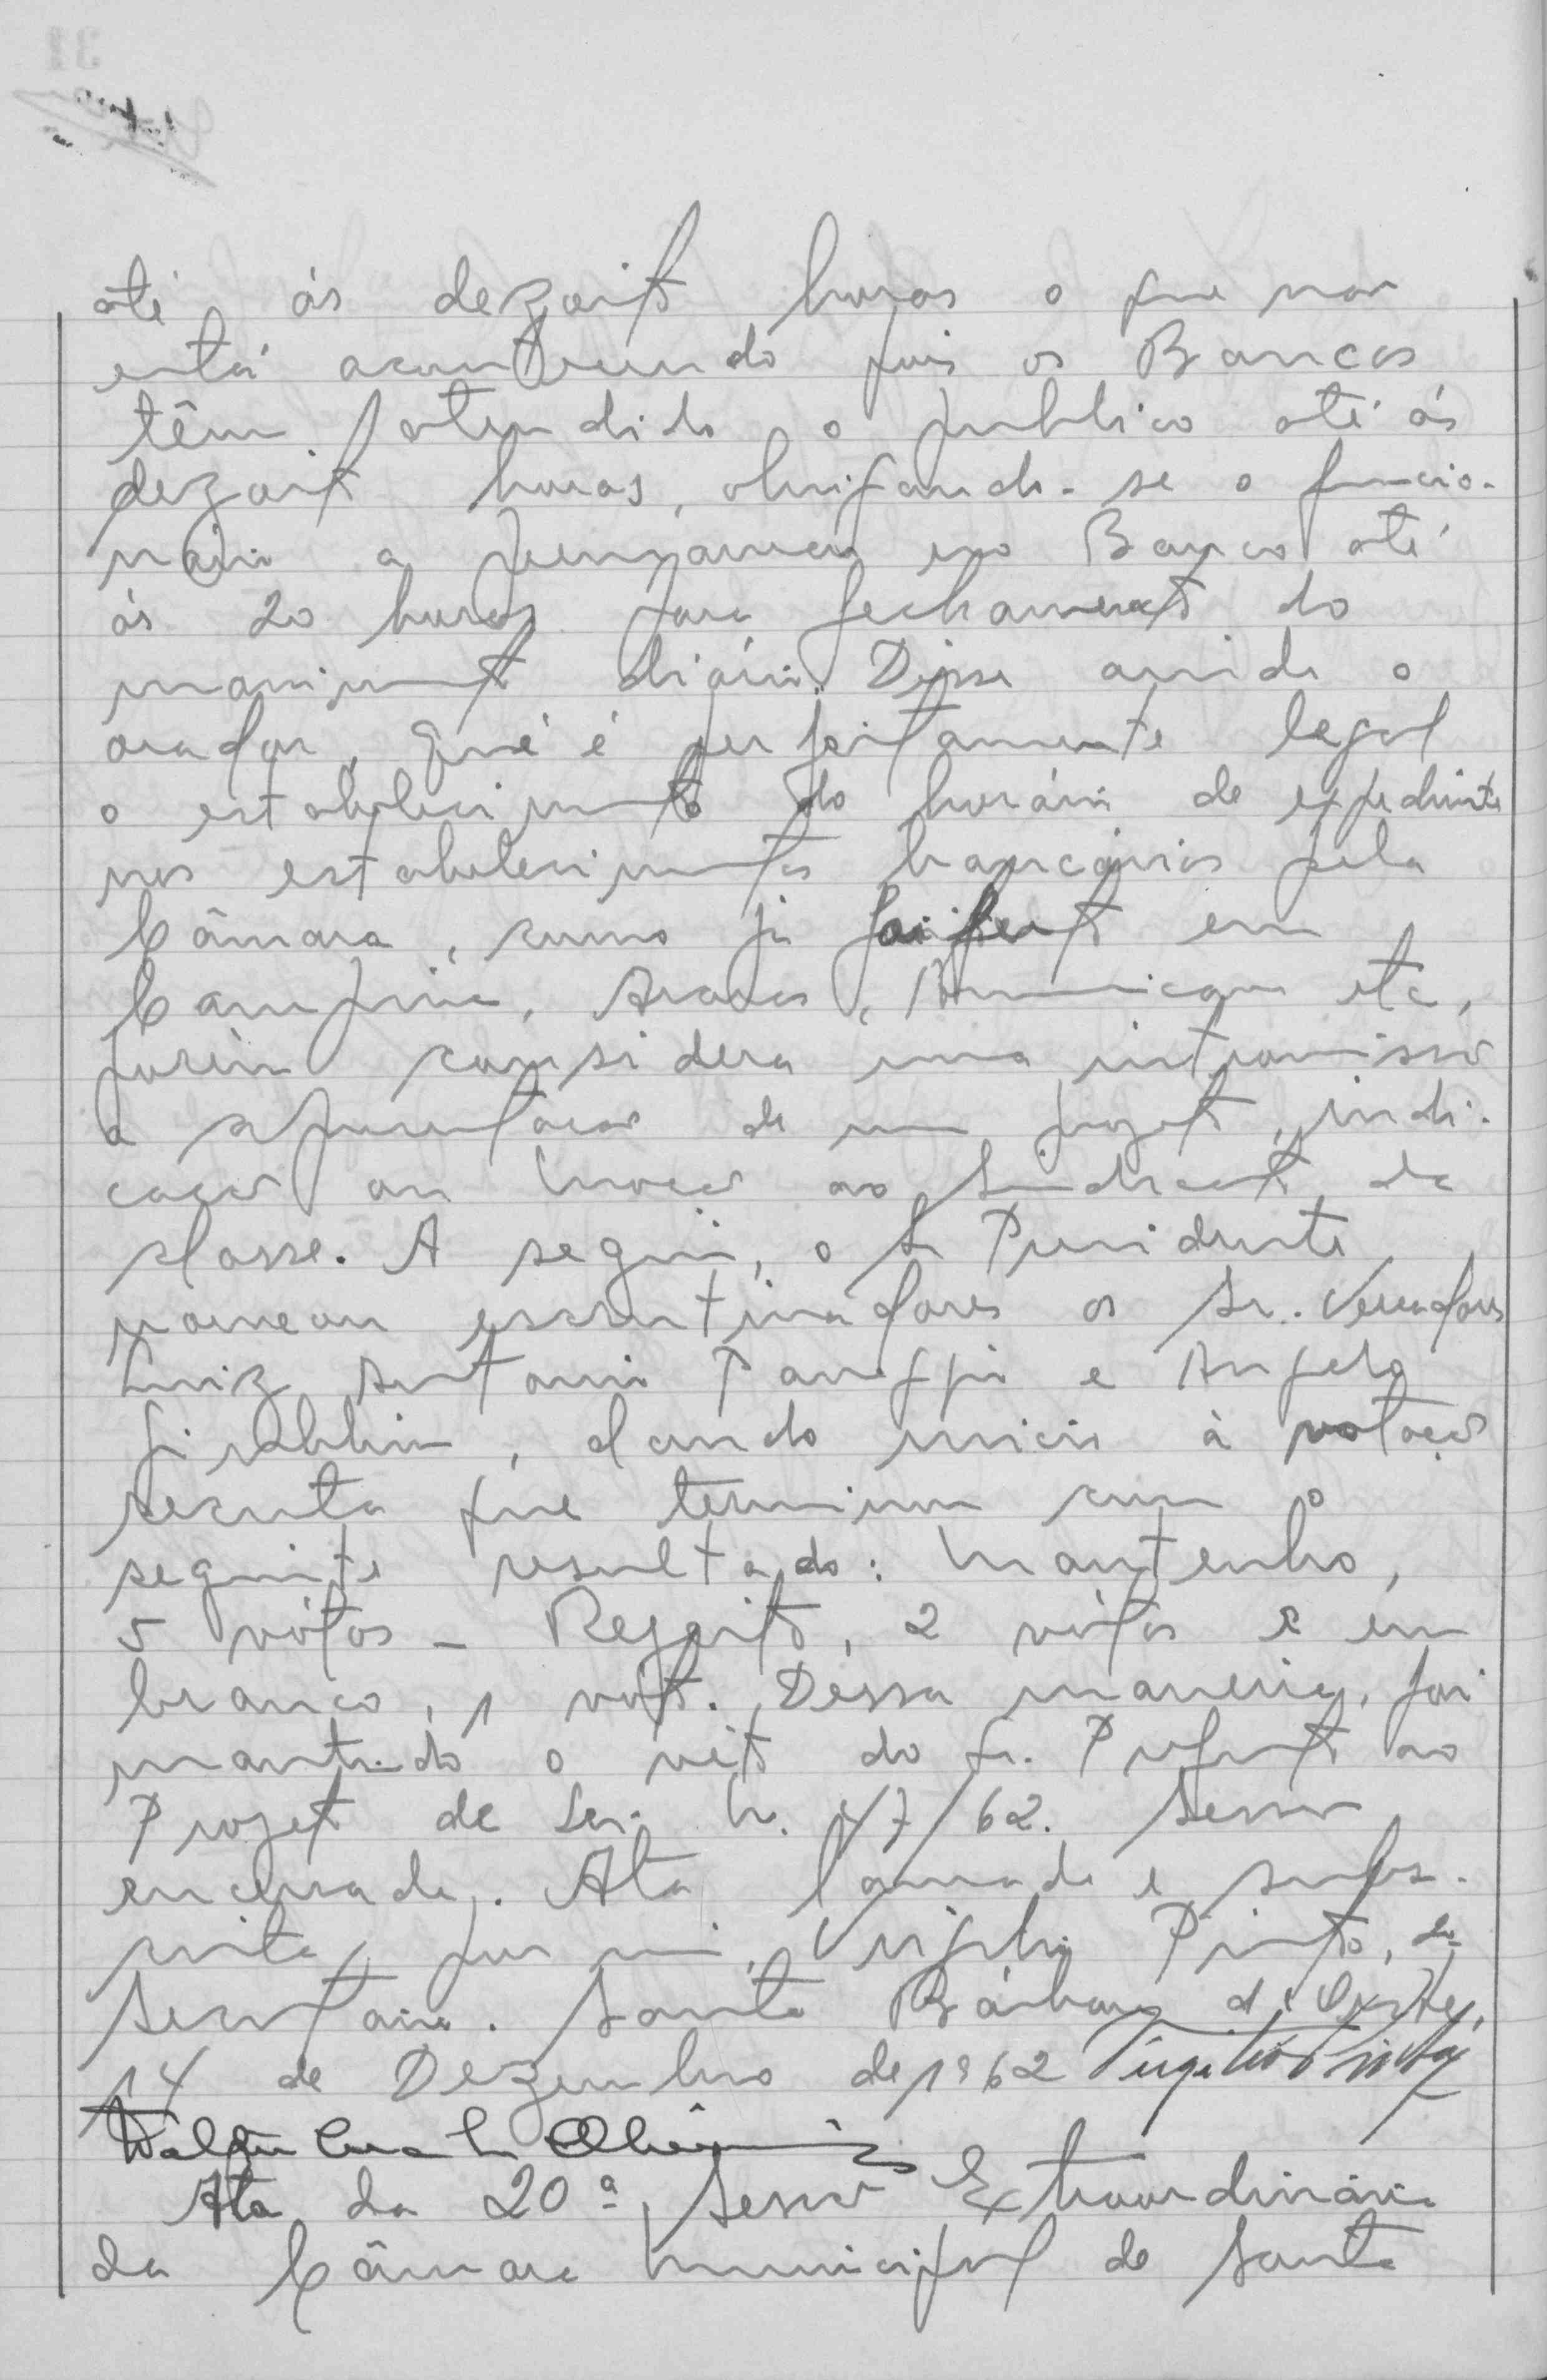 até ás dezoito horas o que não
está acontecendo pois os Bancos
têm atendido o publico até ás
dezoito horas, obrigando-se o funcio-
nário a permanecer no Banco até
ás 20 horas para fechamento do
movimento diário. Disse ainda o
orador, que é perfeitamente legal
o estabelecimento do horário de expediente
nos estabelecimentos bancários pela
Câmara, como já foi feito em
Campinas, Araras, Americana etc,
porém considera uma intromissão
a apresentação de um projeto, indi-
cação ou moção ao Sindicato da
classe. A seguir, o Sr Presidente
nomeou escrutinadores os Sr. Vereadores
Luiz Antonio Panaggio e Angelo
Giubbina, dando inicio à votação
secreta que terminou com o
seguinte resultado: Mantenho,
5 vótos - Rejeito, 2 vótos e em
branco, 1 vóto. Dessa maneira, foi
mantido o véto do Sr. Prefeito ao
Projeto de Lei N. 47/62. Sessão
encerrada. Ata lavrada e subs-
crita por mim, Virgilio Pinto,
Secretario. Santa Bárbara d'Oeste,
14 de Dezembro de 1962 Virgilio Pinto
Walter
Ata da 20ª Sessão Extraordinária
da Câmara Municipal de Santa